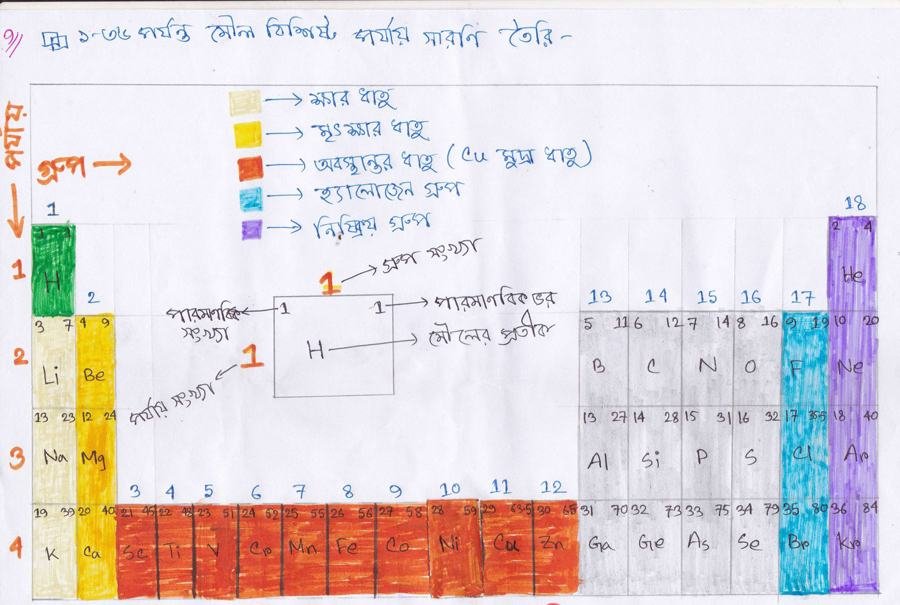 ১// ১-৩৬ পর্যন্ত মৌল বিশিষ্ট পর্যায় সারণি তৈরি -
→ ক্ষার ধাতু
→ মৃৎ ক্ষার ধাতু
→ অবস্থান্তর ধাতু (Cu মুদ্রা ধাতু)
→ হ্যালোজেন গ্রুপ
→ নিষ্ক্রিয় গ্রুপ
পর্যায়
গ্রুপ →
1 18
1 H 2 4 He
1 → গ্রুপ সংখ্যা
পারমাণবিক সংখ্যা
1 1 → পারমাণবিক ভর
H → মৌলের প্রতীক
1
পর্যায় সংখ্যা
2 13 14 15 16 17
2 3 7 Li 4 9 Be 5 11 B 6 12 C 7 14 N 8 16 O 9 19 F 10 20 Ne
3 13 23 Na 12 24 Mg 13 27 Al 14 28 Si 15 31 P 16 32 S 17 35.5 Cl 18 40 Ar
3 4 5 6 7 8 9 10 11 12
4 19 39 K 20 40 Ca 21 45 Sc 22 48 Ti 23 51 V 24 52 Cr 25 55 Mn 26 56 Fe 27 58 Co 28 59 Ni 29 63.5 Cu 30 65 Zn 31 70 Ga 32 73 Ge 33 75 As 34 79 Se 35 80 Br 36 84 Kr